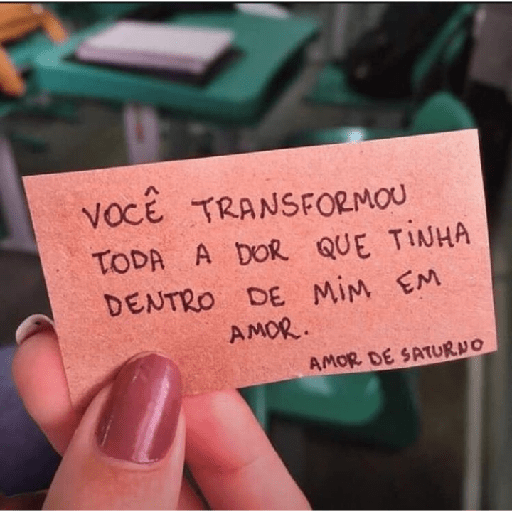 VOCÊ TRANSFORMOU
TODA A DOR QUE TINHA
DENTRO DE MIM EM
AMOR.
AMOR DE SATURNO